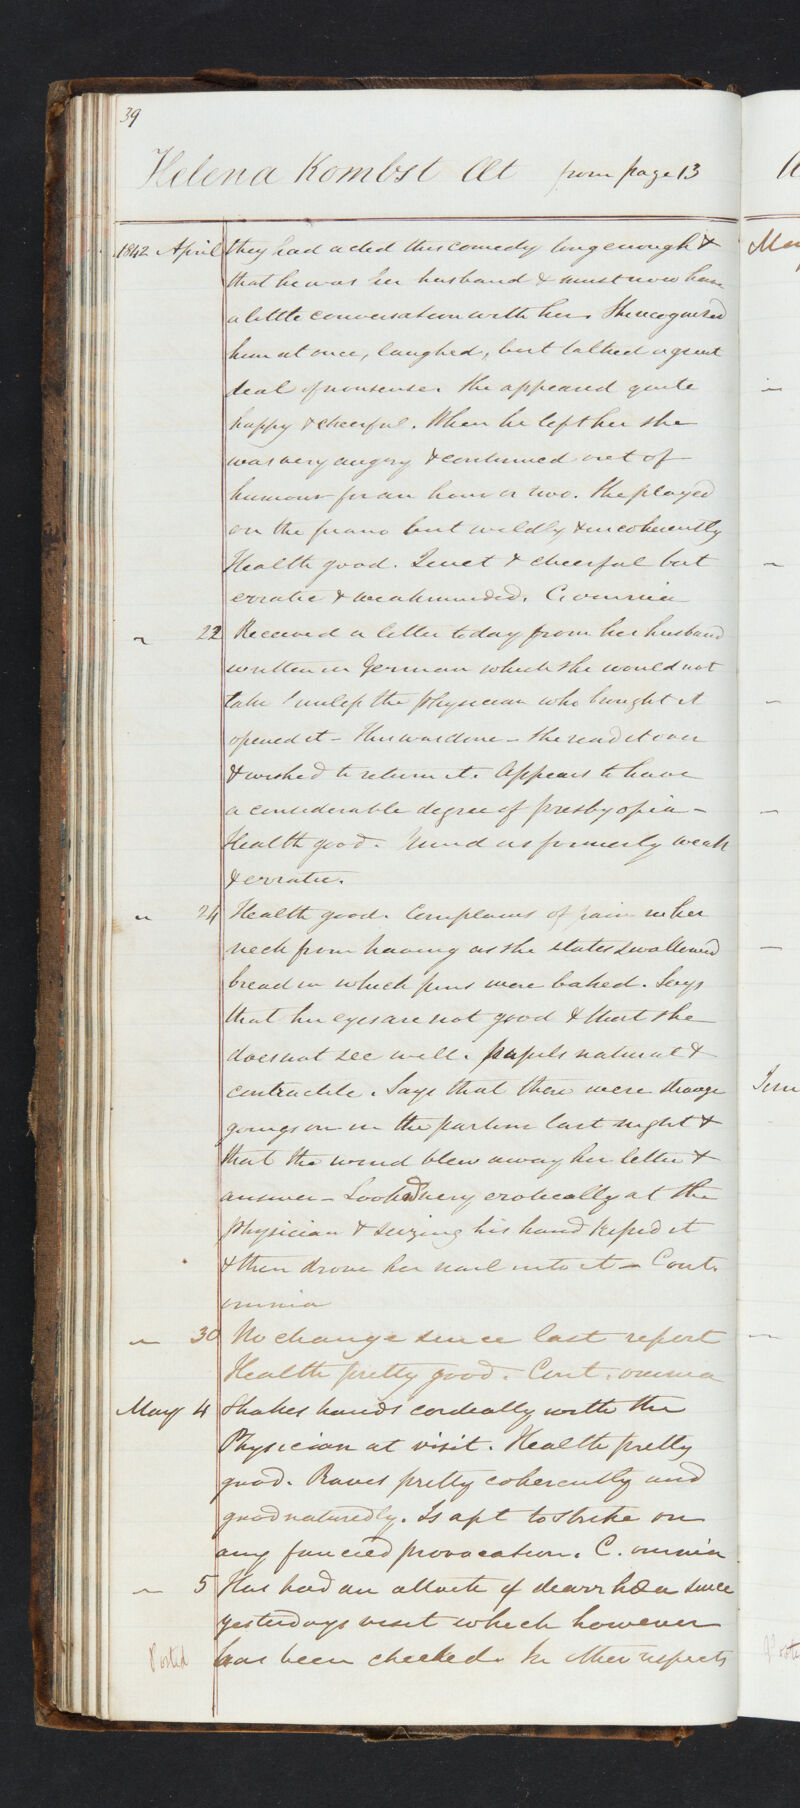 39
Helena Kombst Æt from page 13
1842 April they had acted this comedy long enough &
that he was her husband & must now have
a little conversation with her. She recognised
him at once, laughed, but talked a great
deal of nonsense. She appeared quite
happy & cheerful. When he left her she
was very angry & continued out of
humour for an hour or two. She played
on the piano but wildly & incoherently
Health good. Quiet & cheerful but
erratic & weakminded. C. omnia
" 22 Received a letter today from her husband
written in German which she would not
take unless the physician who brought it
opened it – This was done – She read it over
& wished to return it. Appears to have
a considerable degree of presbyopia –
Health good. Mind as formerly weak
& erratic.
" 24 Health good. Complains of pain in her
neck from having as she states swallowed
bread in which pins were baked. Says
that her eyes are not good & that she
does not see well. Pupils natural &
contractile. Says that there were strange
goings on in the parlour last night &
that the wind blew away her letter &
answer – Looked very erotically at the
physician & seizing his hand kissed it
& then drove her nail into it – Cont.
omnia
" 30 No change since last report
Health pretty good. Cont. omnia
May 4 Shakes hands cordially with the
Physician at visit. Health pretty
good. Raves pretty coherently and
goodnaturedly. Is apt to strike on
any fancied provocation. C. omnia
" 5 Has had an attack of diarrhœa since
yesterdays visit which however
Posted has been checked. In other respects